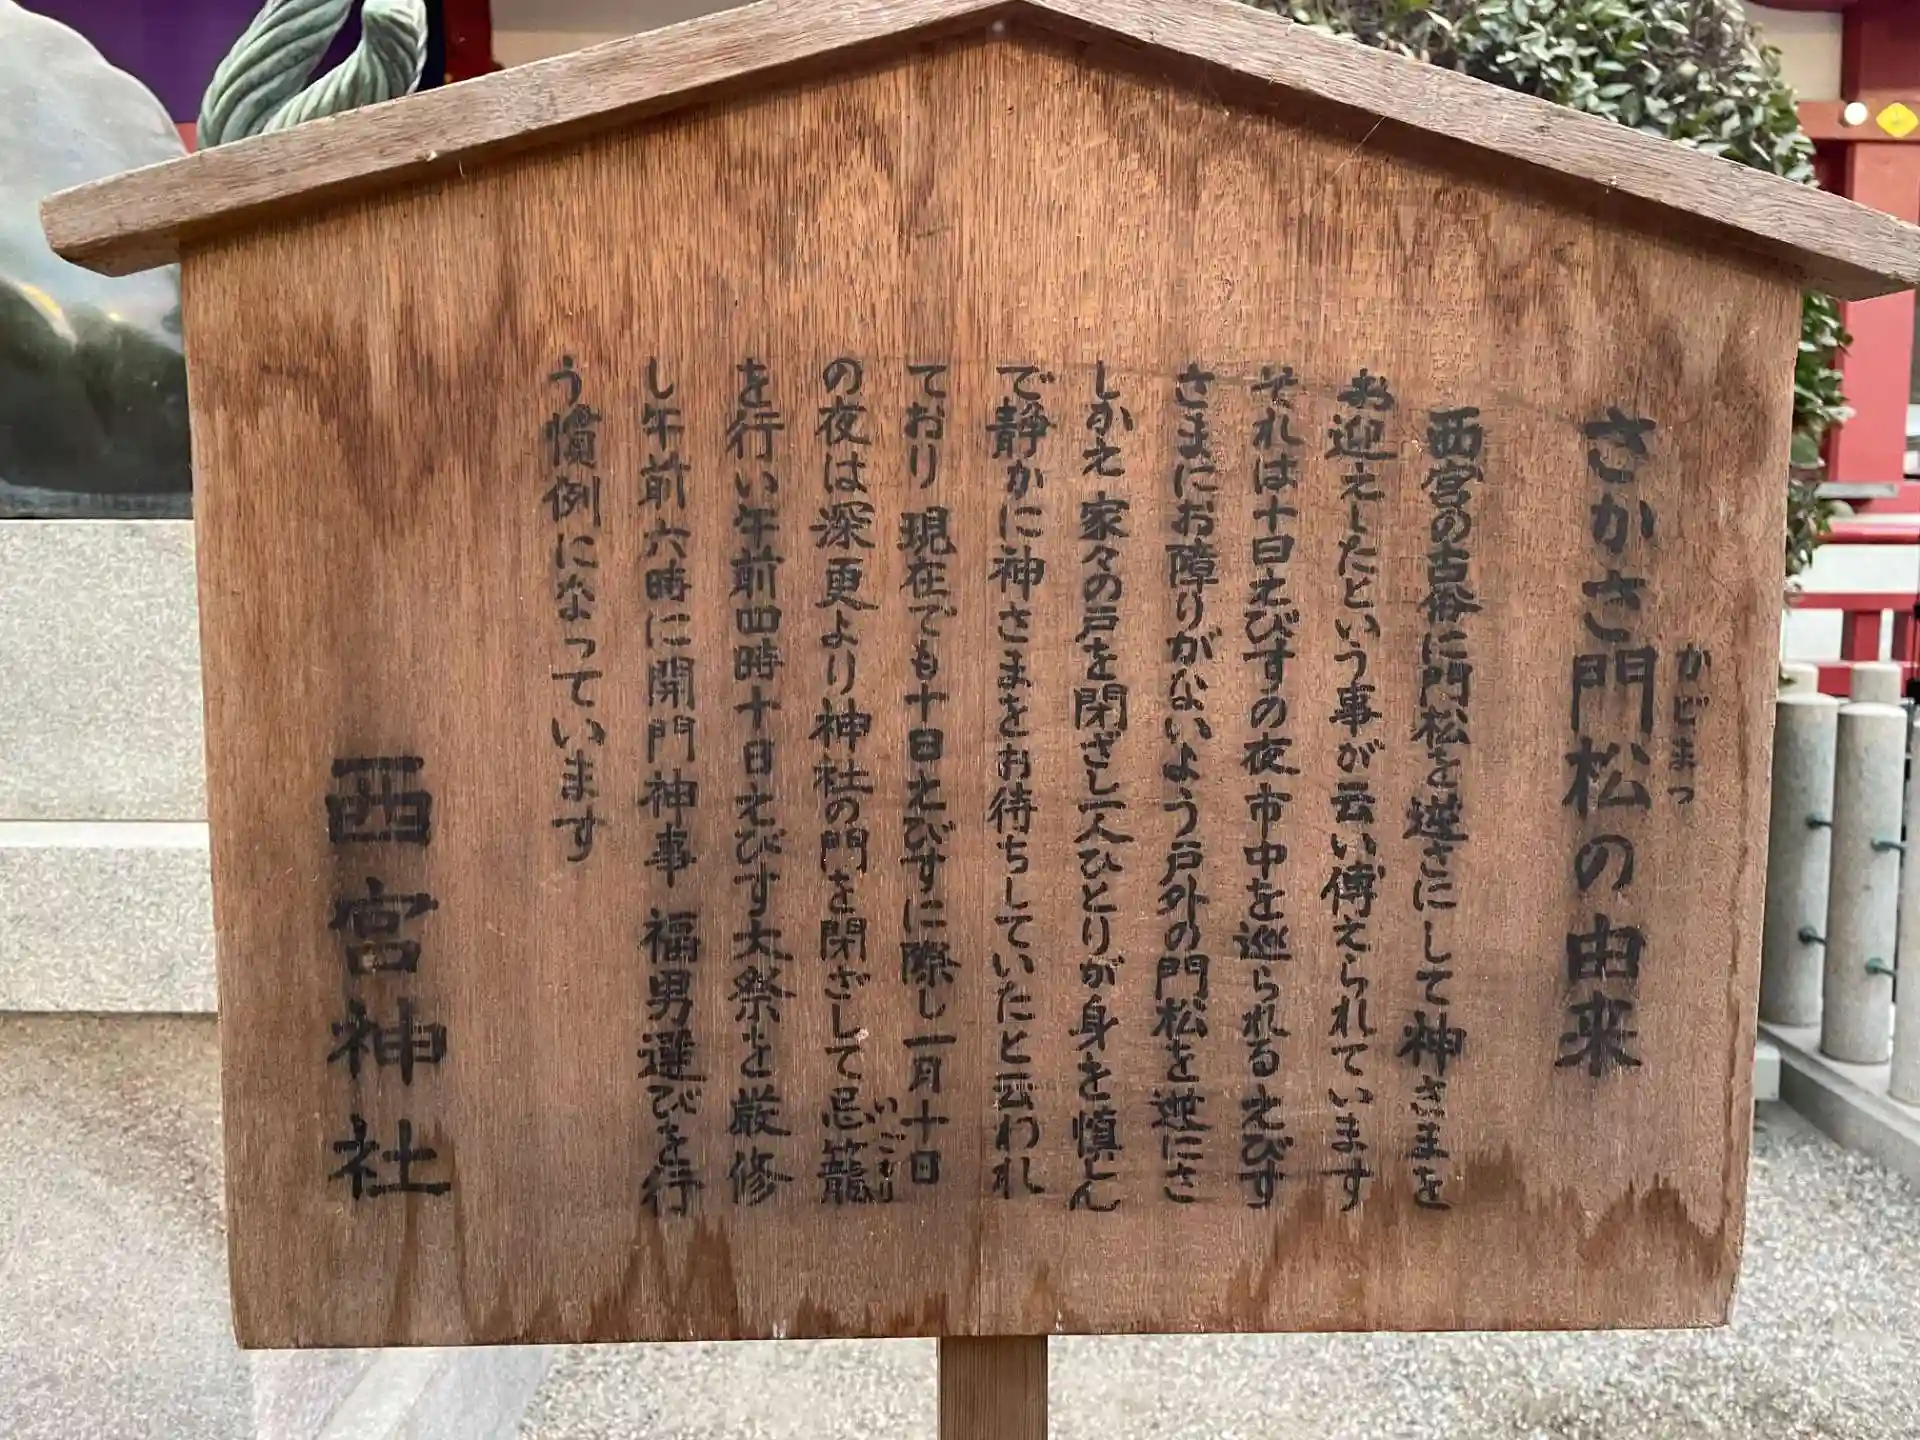 さかさ門松の由来
かどまつ
西宮の古俗に門松を逆さにして神さまを
お迎えしたという事が云い傳えられています
それは十日えびすの夜市中を巡られるえびす
さまにお障りがないよう戸外の門松を逆にさ
しかえ家々の戸を閉ざし一人ひとりが身を慎しん
で静かに神さまをお待ちしていたと云われ
ており 現在でも十日えびすに際し一月十日
の夜は深更より神社の門を閉ざして忌籠
いごもり
を行い午前四時十日えびす大祭を厳修
し午前六時に開門神事 福男選びを行
う慣例になっています
西宮神社